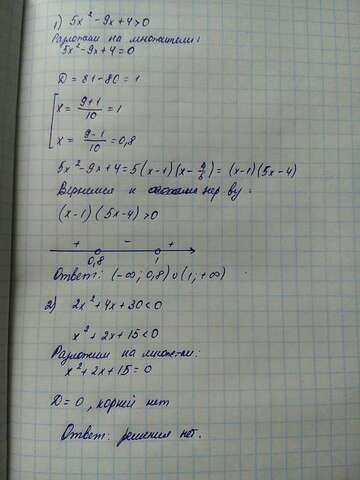 1) 5x² - 9x + 4 > 0
Разложим на множители:
5x² - 9x + 4 = 0
D = 81 - 80 = 1
x = (9+1)/10 = 1
x = (9-1)/10 = 0,8
5x² - 9x + 4 = 5(x-1)(x - 4/5) = (x-1)(5x-4)
Вернимся к нер ву:
(x-1)(5x-4) > 0
+ - +
0,8 1
Ответ: (-∞; 0,8) ∪ (1; +∞)
2) 2x² + 4x + 30 < 0
x² + 2x + 15 < 0
Разложим на множ-ли:
x² + 2x + 15 = 0
D = 0, корней нет
Ответ: решения нет.